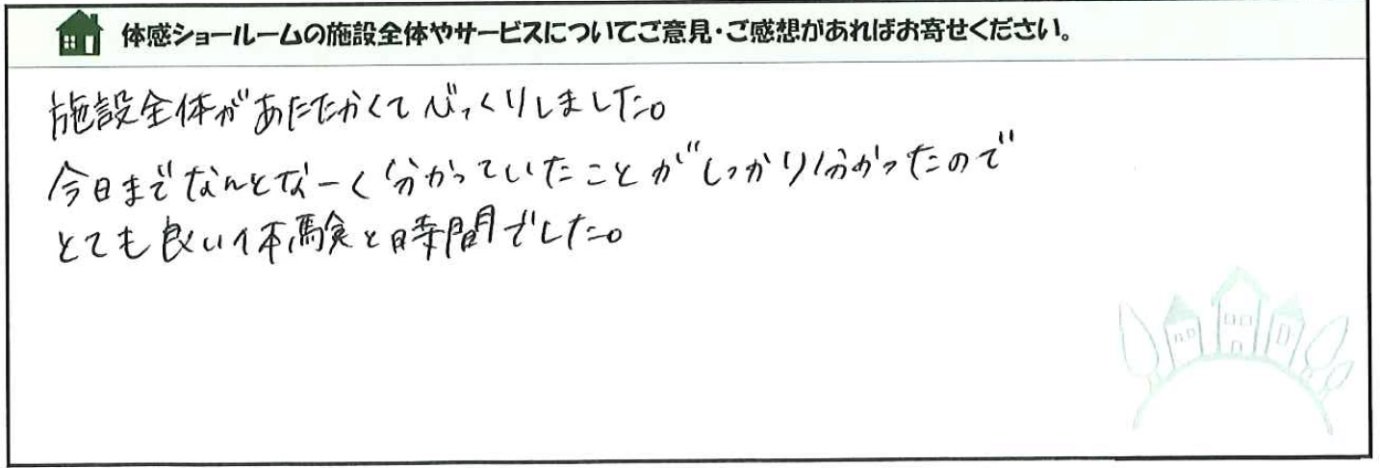 体感ショールームの施設全体やサービスについてご意見・ご感想があればお寄せください。
施設全体があたたかくてびっくりしました。
今日までなんとなーく分かっていたことがしっかり分かったので
とても良い体験と時間でした。